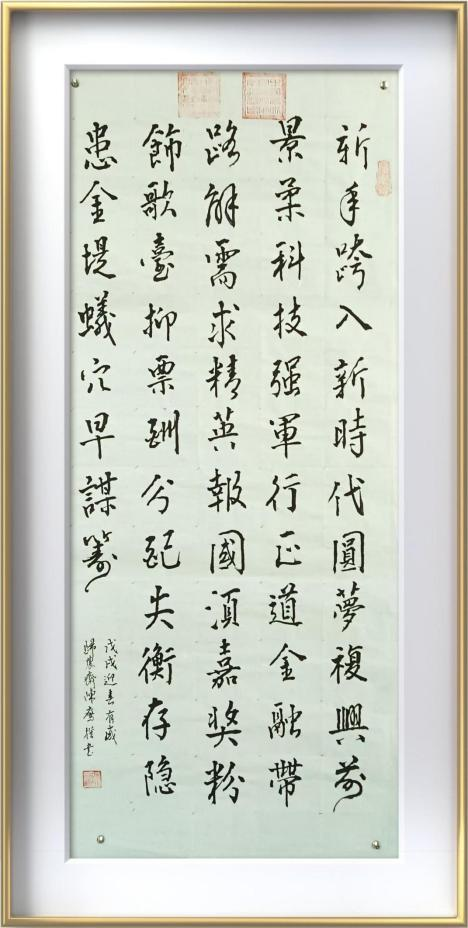 新年跨入新時代圓夢複興前
景柔科技强軍行正道金融帶
路解需求精英報國須嘉奖粉
飾歌臺抑票酬分配失衡存隐
患金堤蟻穴早謀籌
戊戌迎春有感